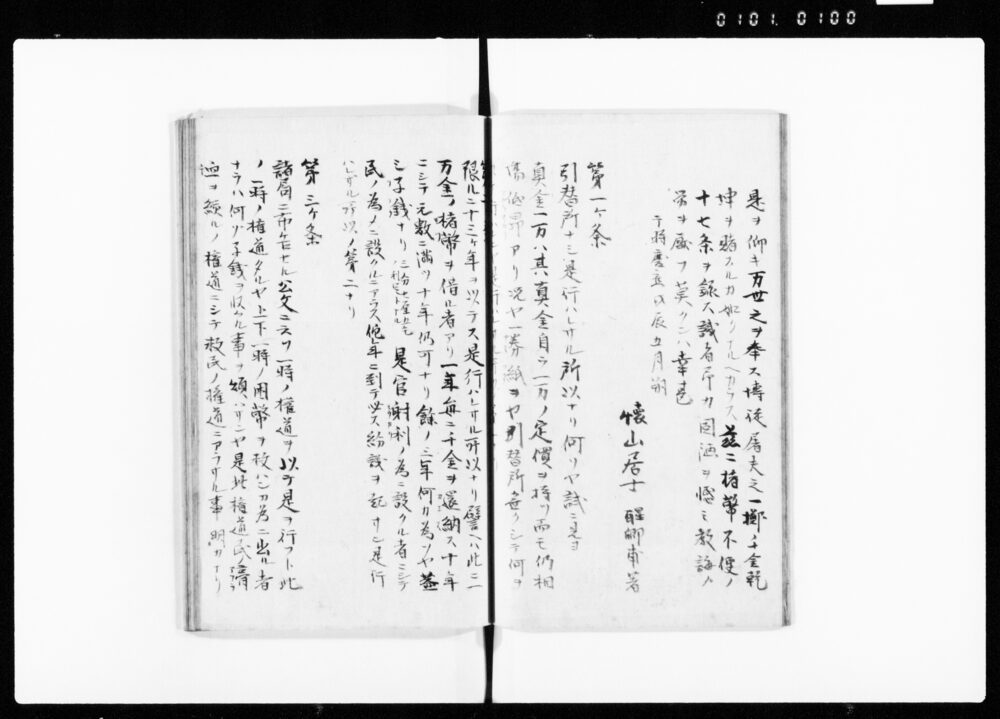 0101. 0100
是ヲ仰キ万世之ヲ奉ス博徒屠夫之一擲千金乾
坤ヲ賭スルカ如クナルヘカラス茲ニ楮幣不便ノ
十七条ヲ録ス識者予カ固陋ヲ憾ミ教誨ノ
労ヲ厭フ莫クンハ幸甚
于時慶応戊辰五月朔
懐山居士 醒郷甫著
第一ケ条
引替所ナキ是行ハレサル所以ナリ何ソヤ試ニ見ヨ
真金一万ハ其真金自ラ一万ノ定價ヲ持ツ而モ仍相
場低昂アリ况ヤ一券紙ヲヤ引替所無クシテ何ヲ
限ルニ十三ケ年ヲ以テス是行ハレサル所以ナリ譬ヘハ此ニ一
万金ノ楮幣ヲ借ル者アリ一年毎ニ千金ヲ還納ス十年
ニシテ元数ニ満ツ十年仍可ナリ餘ノ三年何ノ為ソヤ蓋
シ子銭ナリ 是官射利ノ為ニ設クル者ニシテ
民ノ為ノニ設クルニアラス他年ニ到テ必ス紛議ヲ起サン是行
ハレサル所以ノ第二ナリ
第三ケ条
諸局ニ布告セル公文ニ云フ一時ノ権道ヲ以テ是ヲ行フト此
ノ一時ノ権道タルヤ上下一時ノ困幣ヲ救ハンカ為ニ出ル者
ナラハ何ソ子銭ヲ収ムル事ヲ須ハサンヤ是此権道民ノ膏
血ヲ絞ルノ権道ニシテ救民ノ権道ニアラサル事明カナリ